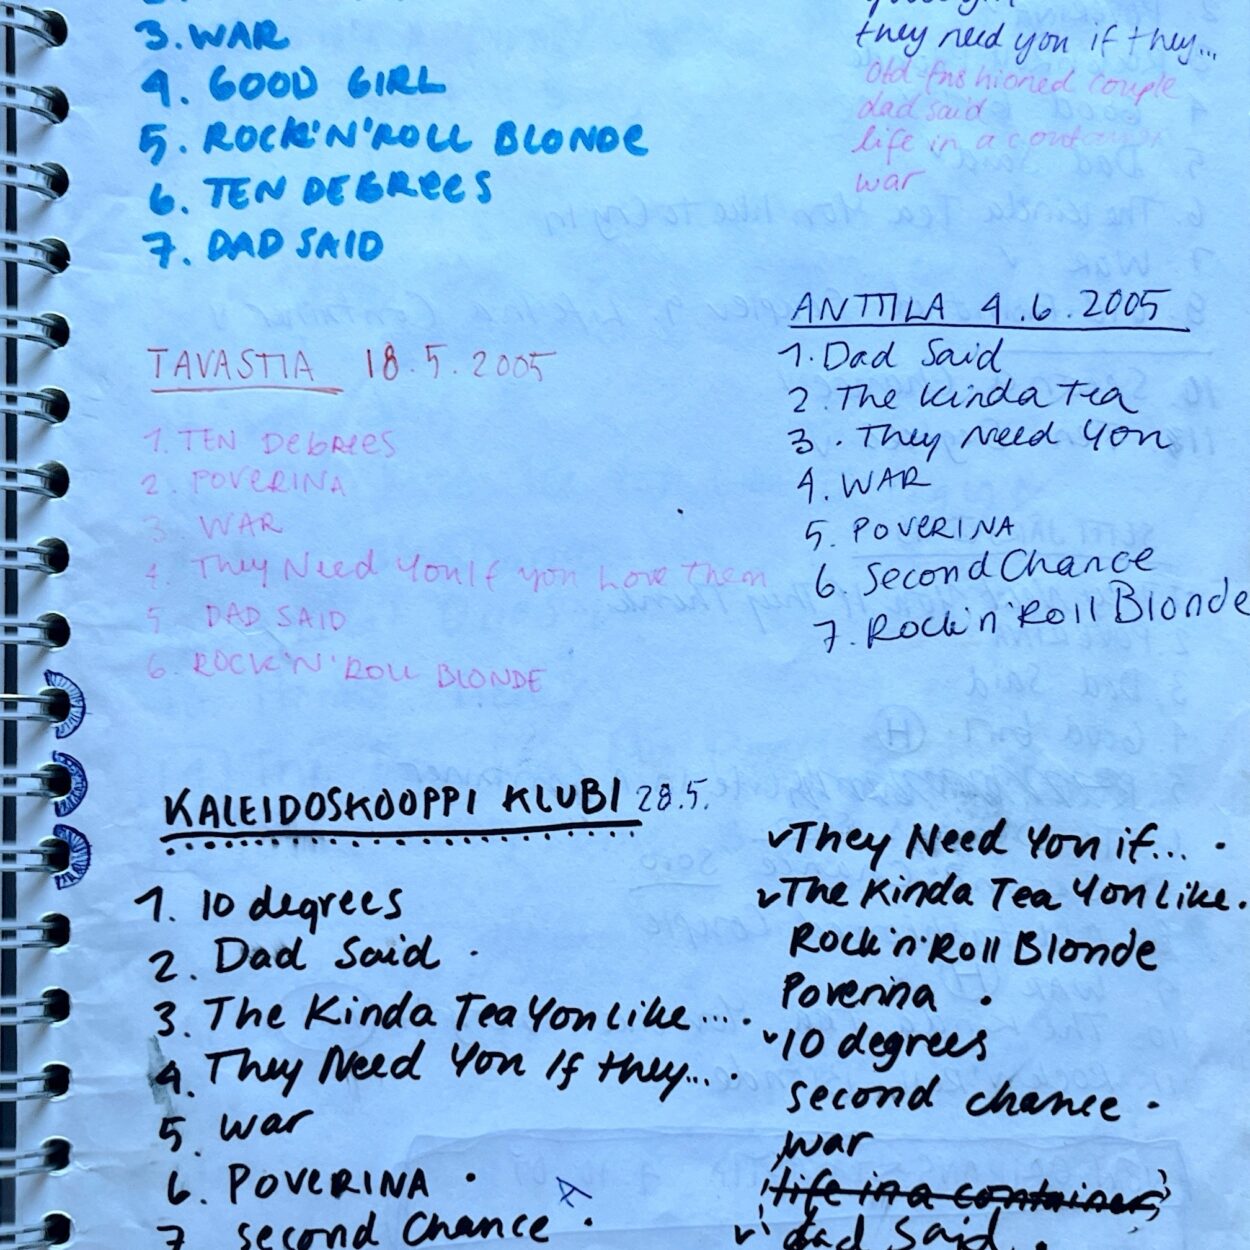 3. WAR
4. GOOD GIRL
5. ROCK'N'ROLL BLONDE
6. TEN DEGREES
7. DAD SAID
they need you if they...
Old-fashioned couple
dad said
life in a
war
TAVASTIA 18.5.2005
1. TEN DEGREES
2. POVERINA
3. WAR
4. They Need You If you Love them
5 DAD SAID
6. ROCK'N'ROLL BLONDE
ANTTILA 4.6.2005
1. Dad Said
2. The Kinda Tea
3. They Need You
4. WAR
5. POVERINA
6. Second Chance
7. Rock'n'Roll Blonde
KALEIDOSKOOPPI KLUBI 28.5.
1. 10 degrees
2. Dad Said .
3. The Kinda Tea You Like ....
4. They Need You If they... .
5. war
6. POVERINA .
7 second Chance .
They Need You if... .
The Kinda Tea You Like.
Rock'n'Roll Blonde
Poverina .
10 degrees
second chance .
war
life in a container
dad said .